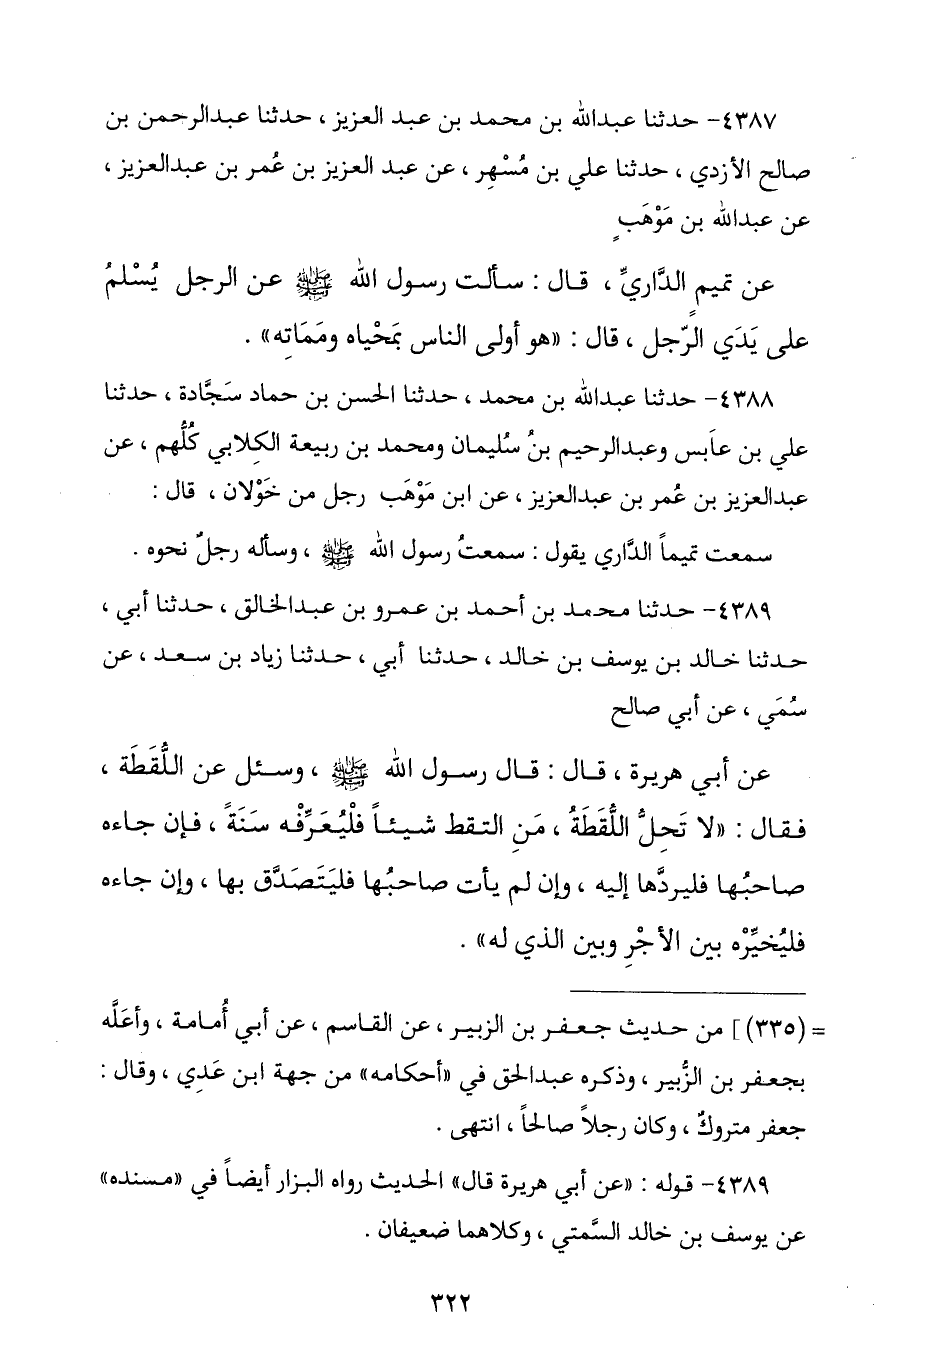 ٤٣٨٧- حدثنا عبدالله بن محمد بن عبد العزيز ، حدثنا عبدالرحمن بن
صالح الأزدي ، حدثنا علي بن مُسْهِر ، عن عبد العزيز بن عُمر بن عبدالعزيز ،
عن عبدالله بن مَوْهَبٍ
عن تميمٍ الدَّاريِّ ، قال : سألت رسول الله ﷺ عن الرجل يُسْلمُ
على يَدَي الرّجل ، قال : «هو أولى الناس بمَحْياه ومَمَاتِه» .
٤٣٨٨- حدثنا عبدالله بن محمد ، حدثنا الحسن بن حماد سَجَّادة ، حدثنا
علي بن عابس وعبدالرحيم بنُ سُليمان ومحمد بن ربيعة الكلابي كُلُّهم ، عن
عبدالعزيز بن عُمر بن عبدالعزيز ، عن ابن مَوْهَب رجل من خَوْلان ، قال :
سمعت تميماً الدَّاري يقول : سمعتُ رسول الله ﷺ ، وسأله رجلٌ نحوه .
٤٣٨٩- حدثنا محمد بن أحمد بن عمرو بن عبدالخالق ، حدثنا أبي ،
حدثنا خالد بن يوسف بن خالد ، حدثنا أبي ، حدثنا زياد بن سعد ، عن
سُمَي ، عن أبي صالح
عن أبي هريرة ، قال : قال رسول الله ﷺ ، وسئل عن اللُّقَطَة ،
فقال : «لا تَحِلُّ اللُّقَطَةُ ، مَنِ التقط شيئاً فلْيُعَرِّفْه سَنَةً ، فإن جاءه
صاحبُها فليردَّها إليه ، وإن لم يأت صاحبُها فليَتَصَدَّق بها ، وإن جاءه
فليُخيِّرْه بين الأجْرِ وبين الذي له» .
= (٣٣٥)] من حديث جعفر بن الزبير ، عن القاسم ، عن أبي أُمامة ، وأعَلَّه
بجعفر بن الزُّبير ، وذكره عبدالحق في «أحكامه» من جهة ابن عَدي ، وقال :
جعفر متروكٌ ، وكان رجلاً صالحاً ، انتهى .
٤٣٨٩- قوله : «عن أبي هريرة قال» الحديث رواه البزار أيضاً في «مسنده»
عن يوسف بن خالد السَّمتي ، وكلاهما ضعيفان .
٣٢٢